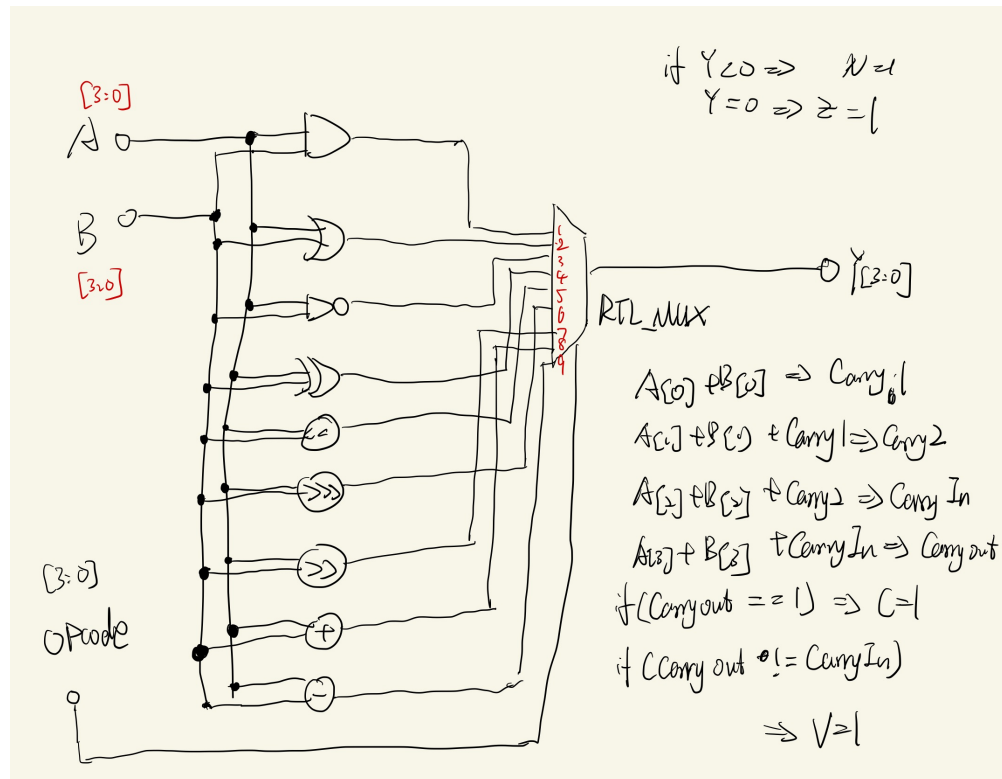 [3:0]
A
B
[3:0]
if Y<0 => N=1
Y=0 => Z=1
1
2
3
4
5
6
7
8
9
RTL_MUX
Y[3:0]
<
>>>
>>
+
-
[3:0]
OPcode
A[0]+B[0] => Carry1
A[1]+B[1]+Carry1=>Carry2
A[2]+B[2]+Carry2=>Carry In
A[3]+B[3]+CarryIn=>Carryout
if(Carryout==1) => C=1
if(Carryout != CarryIn)
=> V=1